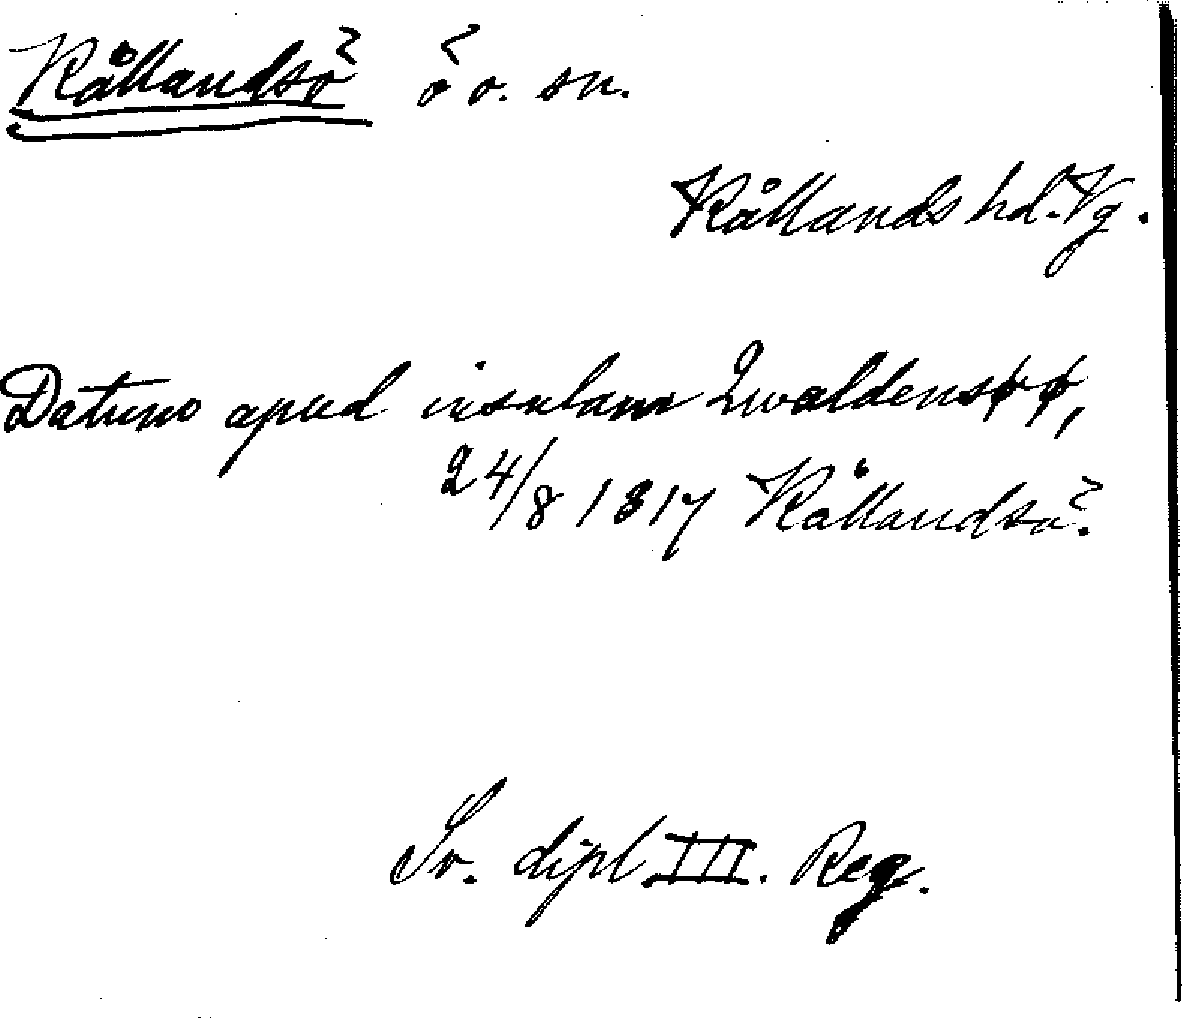 Kållandsö ö o. sn.
Kållands hd. Vg.
Datum apud insulam Qwaldensøø,
24/8 1317 Kållandsö.
Sv. dipl III. Reg.